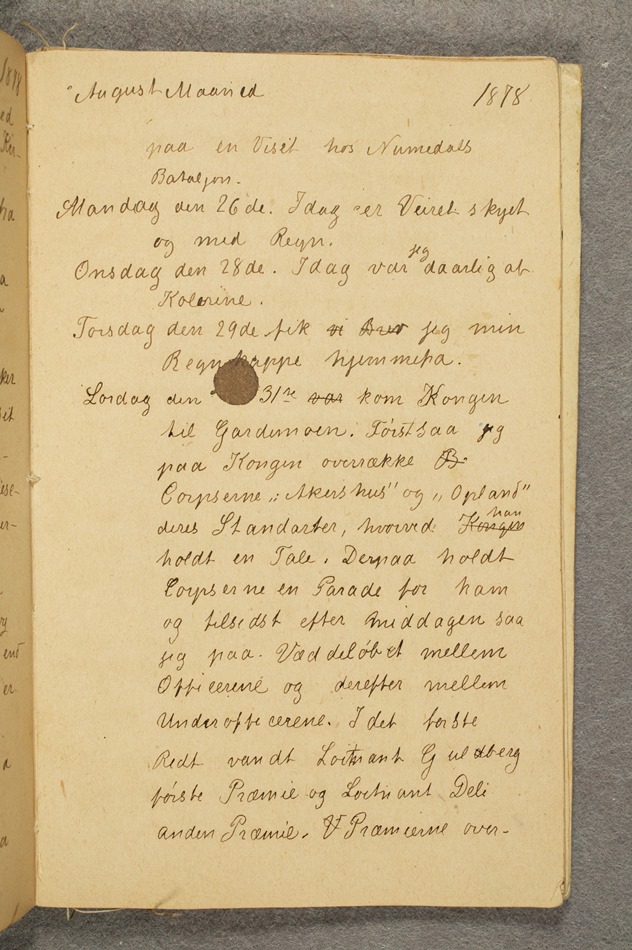 August Maaned 1878
paa en Visit hos Numedals
Bataljon.
Mandag den 26de. Idag er Veiret skyet
og med Regn.
Onsdag den 28de. Idag var jeg daarlig af
Kolerine.
Torsdag den 29de fik vi Brev jeg min
Regnkappe hjemmefra.
Lørdag den 31te var kom Kongen
til Gardemoen. Først saa jeg
paa Kongen overrække B
Corpserne „Akershus" og „Opland"
deres Standarter, hvorved Kongen han
holdt en Tale. Derpaa holdt
Corpserne en Parade for ham
og tilsidst efter Middagen saa
jeg paa Væddeløbet mellem
Officerene og derefter mellem
Underofficerene. I det første
Redt vandt Loitnant Guldberg
første Præmie og Loitnant Deli
anden Præmie. Præmierne over-